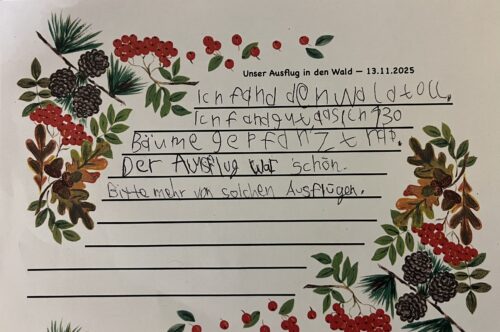 Unser Ausflug in den Wald – 13.11.2025
Ich fand den Wald toll.
Ich fand gut, das ich 430
Bäume gepfanzt hab.
Der Ausflug war schön.
Bitte mehr von solchen Ausflügen.